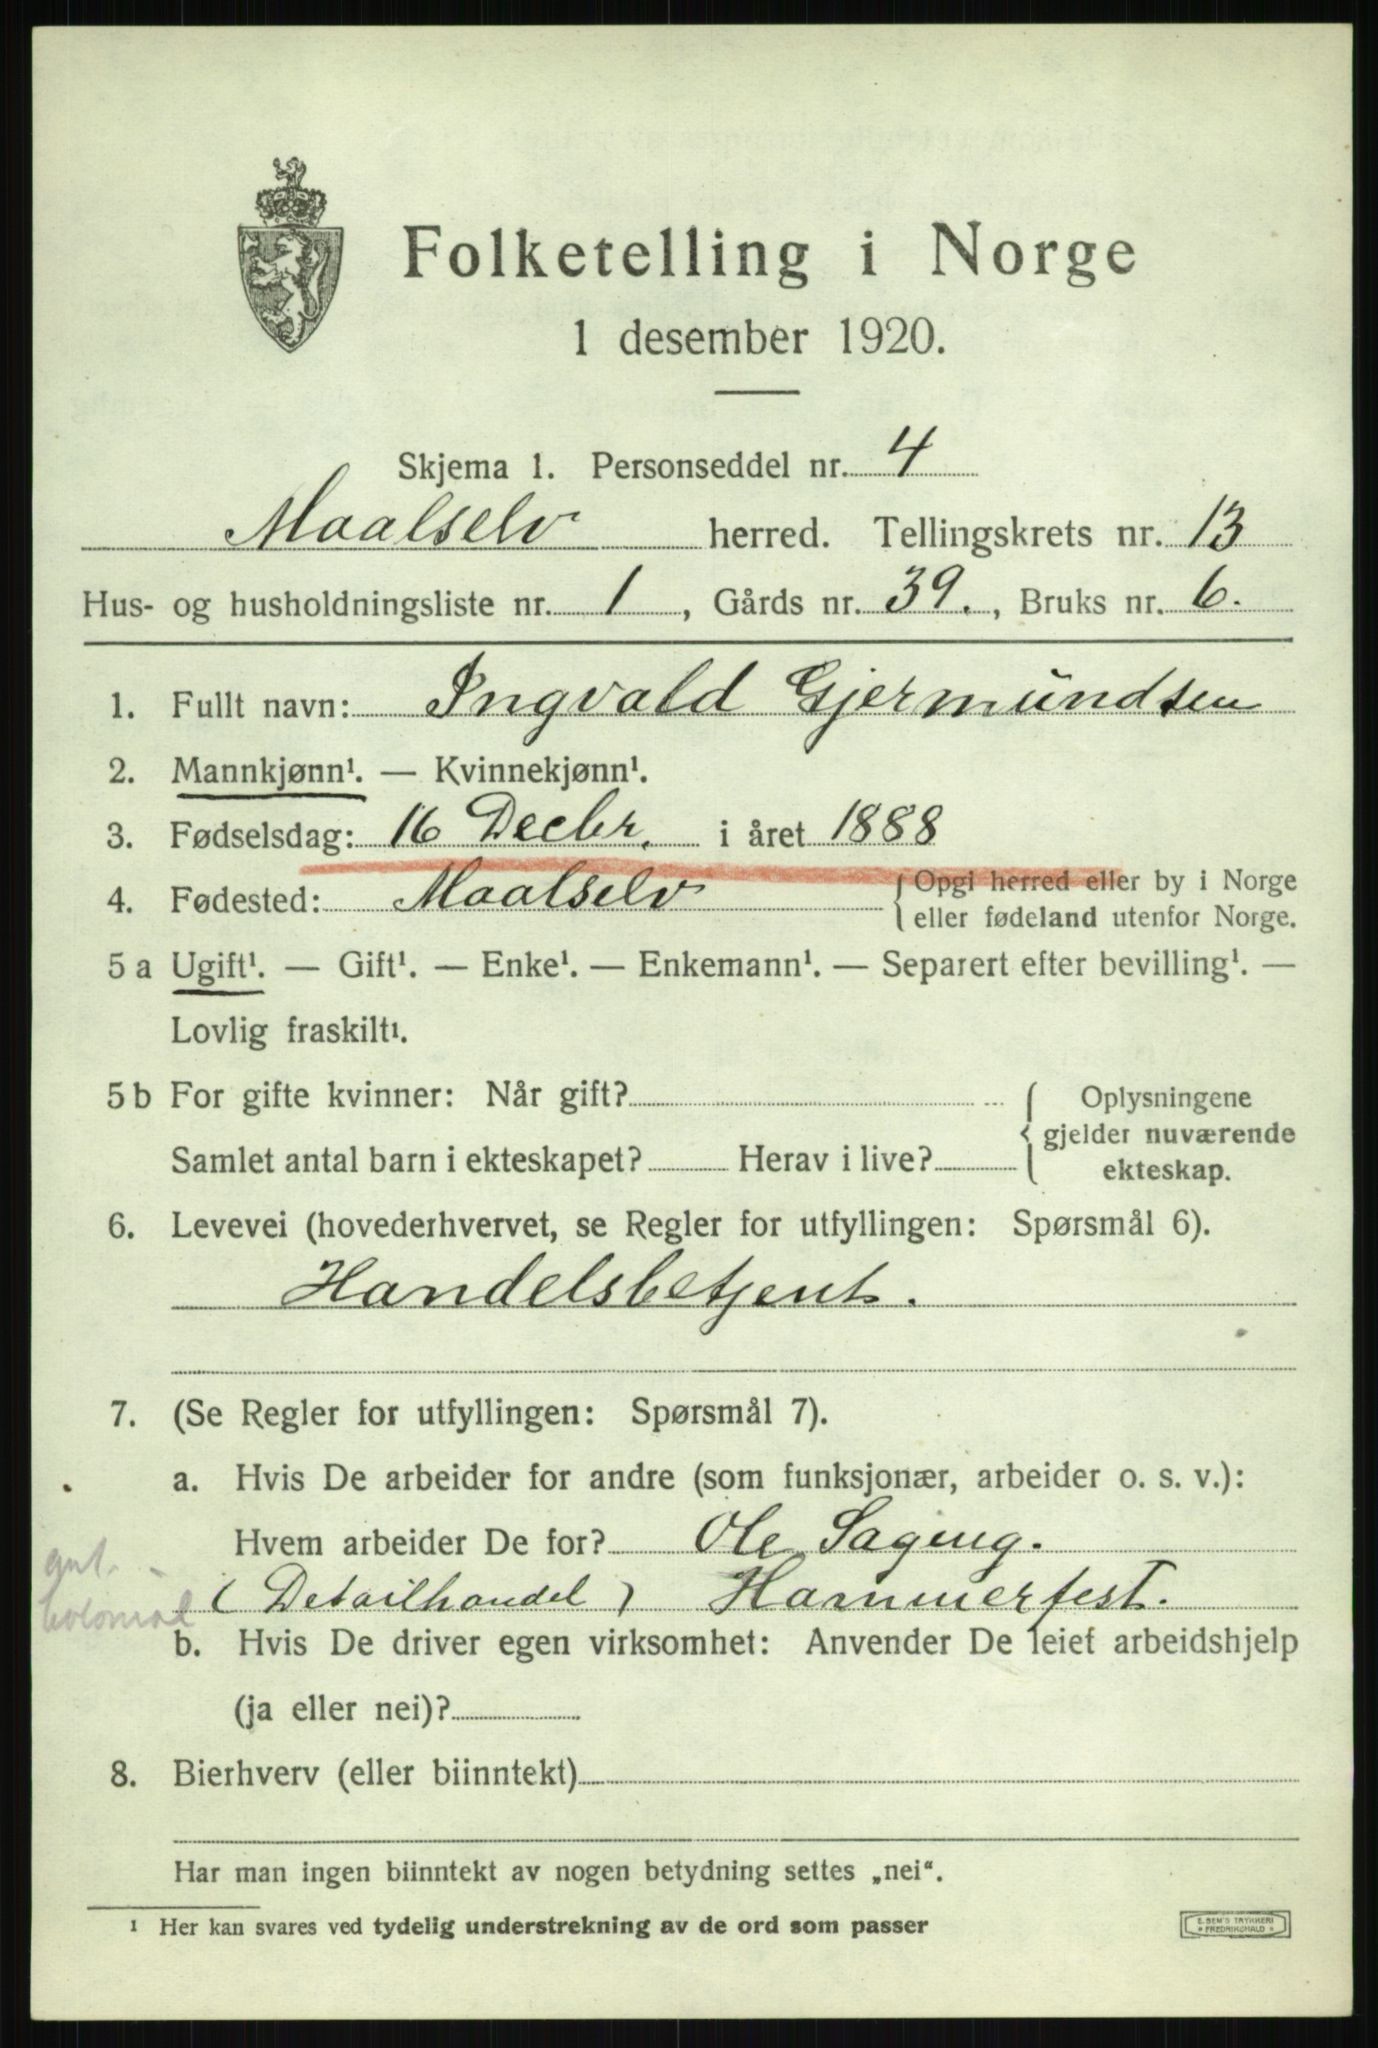 Folketelling i Norge
1 desember 1920.
Skjema 1. Personseddel nr. 4
Maalselv herred. Tellingskrets nr. 13
Hus- og husholdningsliste nr. 1, Gårds nr. 39., Bruks nr. 6.
1. Fullt navn: Ingvald Gjermundsen
2. Mannkjønn¹. — Kvinnekjønn¹.
3. Fødselsdag: 16 Decbr. i året 1888
4. Fødested: Maalselv { Opgi herred eller by i Norge
eller fødeland utenfor Norge.
5 a Ugift¹. — Gift¹. — Enke¹. — Enkemann¹. — Separert efter bevilling¹. —
Lovlig fraskilt¹.
5 b For gifte kvinner: Når gift?
Samlet antal barn i ekteskapet? Herav i live?
{ Oplysningene
gjelder nuværende
ekteskap.
6. Levevei (hovederhvervet, se Regler for utfyllingen: Spørsmål 6).
Handelsbetjent.
7. (Se Regler for utfyllingen: Spørsmål 7).
a. Hvis De arbeider for andre (som funksjonær, arbeider o. s. v.):
Hvem arbeider De for? Ole Sageng.
(Detailhandel) Hammerfest.
kolonial
b. Hvis De driver egen virksomhet: Anvender De leiet arbeidshjelp
(ja eller nei)?
8. Bierhverv (eller biinntekt)
Har man ingen biinntekt av nogen betydning settes „nei“.
¹ Her kan svares ved tydelig understrekning av de ord som passer
E. SEM'S TRYKKERI
FREDRIKSHALD